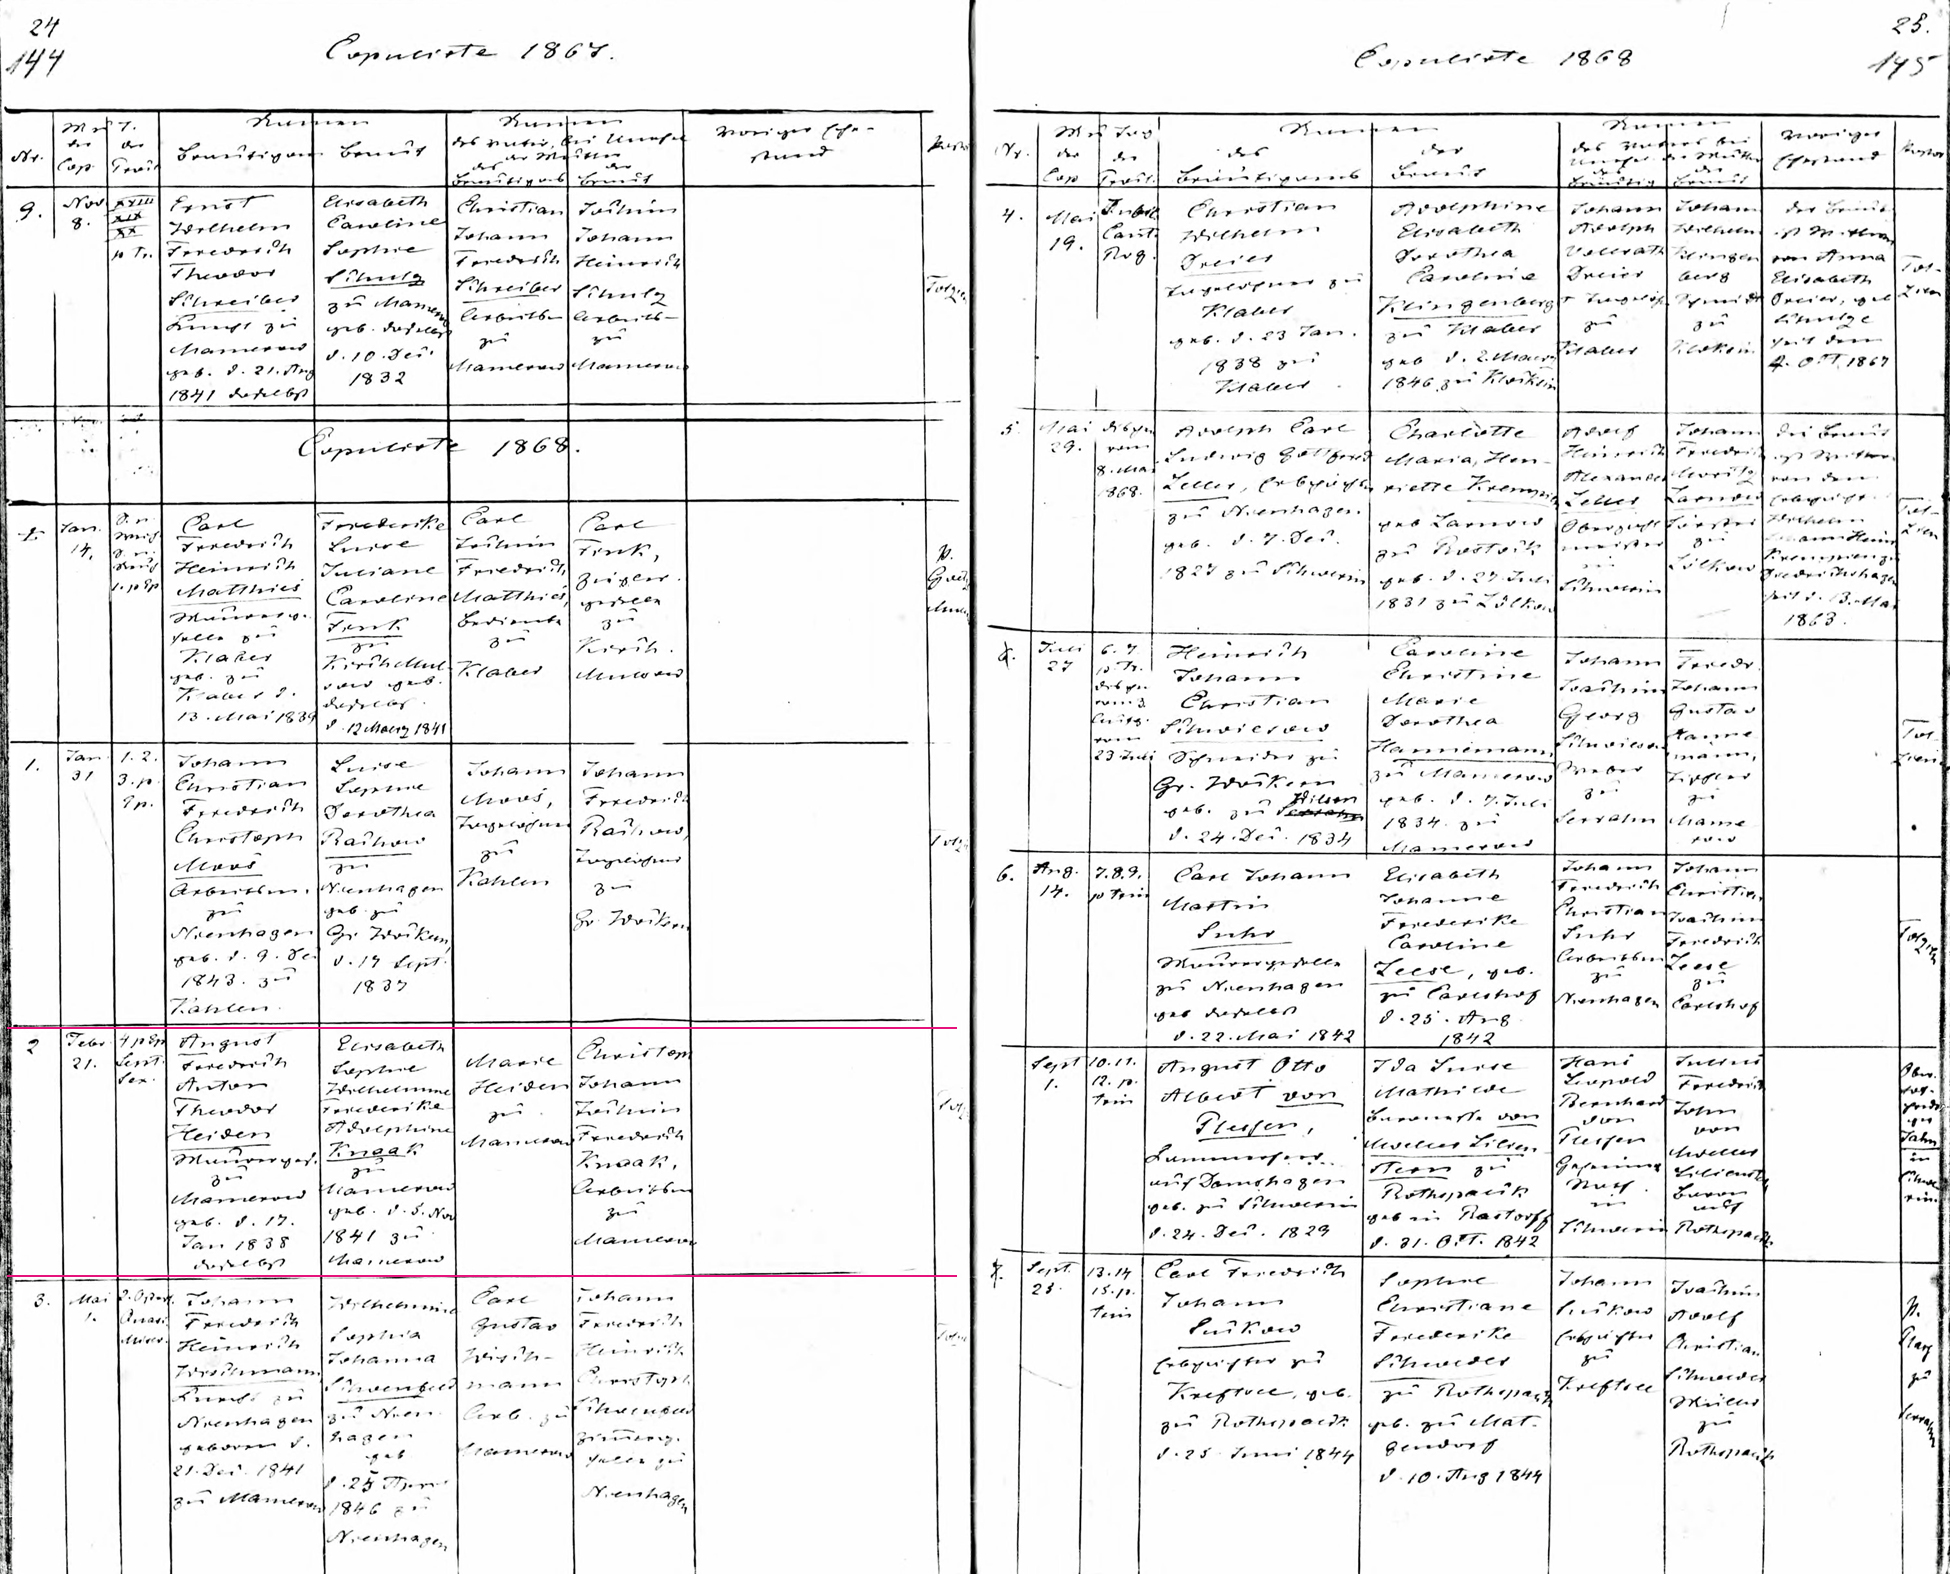 24
144
Copulirte 1867.
Nr.
M u T.
der
Cop
T.
der
Trau
Namen
Bräutigam
Braut
Namen
des Vaters, bei Unehel
der Mutter
des
Bräutigams
der
Braut
Voriger Ehe-
stand
Pastor
9.
Nov
8.
XVIII
XIX
XX
p Tr.
Ernst
Wilhelm
Friedrich
Theodor
Schreiber
Knecht zu
Mamerow
geb. d. 21. Aug
1841 daselbst
Elisabeth
Caroline
Sophie
Schulz
zu Mamerow
geb. daselbst
d. 10. Dec.
1832
Christian
Johann
Friedrich
Schreiber
Arbeitsm
zu
Mamerow
Jochim
Johann
Heinrich
Schulz
Arbeitsm
zu
Mamerow
Copulirte 1868.
Jan.
14.
1. p Ep
Carl
Friedrich
Heinrich
Matthies
Maurerge-
selle zu
Klaber
geb. zu
Klaber d.
13. Mai 1839
Friederike
Luise
Juliane
Caroline
Fenk
zu
Kirch Mul-
sow geb.
daselbst
d. 12 Maerz 1841
Carl
Jochim
Friedrich
Matthies,
Bedienter
zu
Klaber
Carl
Fenk,
Ziegler-
geselle
zu
Kirch.
Mulsow
1.
Jan
31
1. 2.
3. p.
Ep.
Johann
Christian
Friedrich
Christoph
Moos
Arbeitsm.
zu
Nienhagen
geb. d. 9. Dec
1843. zu
Kahlen.
Luise
Sophie
Dorothea
Rachow
zu
Nienhagen
geb. zu
Gr. Wokern,
d. 17 Sept.
1837
Johann
Moos,
Tagelöhner
zu
Kahlen
Johann
Friedrich
Rachow,
Tagelöhner
zu
Gr. Wokern
2
Febr
21.
4 p Ep
Sept.
Sex.
August
Friedrich
Anton
Theodor
Heiden
Maurerges.
zu
Mamerow
geb. d. 17.
Jan 1838
daselbst
Elisabeth
Sophie
Wilhelmine
Friederike
Adolphine
Knaak
zu
Mamerow
geb. d. 5. Nov
1841 zu
Mamerow
Marie
Heiden
zu
Mamerow
Christoph
Johann
Jochim
Friedrich
Knaak,
Arbeitsm
zu
Mamerow
3.
Mai
1.
2. Ostert.
Quasi
Miser.
Johann
Friedrich
Heinrich
Wischmann
Knecht zu
Nienhagen
geboren d.
21. Dec. 1841
zu Mamerow
Wilhelmine
Sophia
Johanna
Schoenfeld
zu Nien-
hagen
geb.
d. 25 April
1846 zu
Nienhagen
Carl
Gustav
Wisch-
mann
Arb. zu
Mamerow
Johann
Friedrich
Heinrich
Christoph
Schoenfeld
Zimmerge-
selle zu
Nienhagen
25.
145
Copulirte 1868
Nr.
M u Tag
der
Cop
der
Trau.
Namen
des
Bräutigams
der
Braut
Namen
des Vaters bei
Unehel. der Mutter
des
Bräutig
der
Braut
Voriger
Ehestand
Pastor
4.
Mai
19.
Jubil
Cant.
Rog.
Christian
Wilhelm
Dreier
Tagelöhner zu
Klaber
geb. d. 23 Jan.
1838 zu
Klaber
Adolphine
Elisabeth
Dorothea
Caroline
Klingenberg
zu Klaber
geb d. 2. Maerz
1846 zu
Johann
Adolph
Vollrath
Dreier
† Tagelöh
zu
Klaber
Johann
Wilhelm
Klingen
berg
Schmidt
zu
der Bräut
ist Wittwer
von Anna
Elisabeth
Dreier, geb
Schulze
seit dem
4. Oct. 1867
5.
Mai
29.
dispen
vom
8. Mai
1868
Adolph Carl
Ludwig Gottfried
Zeller, Erbpächter
zu Nienhagen
geb. d. 7. Dec.
1827 zu Schwerin
Charlotte
Maria, Hen-
riette Krempien
geb Zarnow
zu Rostock
geb. d. 27. Juli
1831 zu Zölkow
Adolf
Heinrich
Alexander
Zeller
Schwerin
Johann
Friedrich
Moritz
Zarnow
Förster
zu
Zölkow
die Braut
ist Wittwe
von dem
Erbpächter
Wilhelm
Johann Heinr
Krempien zu
Friedrichshagen
seit d. 13. Mai
1863.
Juli
27
6. 7
p. Tr.
23 Juli
Heinrich
Johann
Christian
Schwiesow
Schneider zu
Gr. Wokern
geb. zu
d. 24. Dec. 1834
Caroline
Christine
Marie
Dorothea
Hannemann,
zu Mamerow
geb. d. 7. Juli
1834. zu
Mamerow
Johann
Joachim
Georg
Schwiesow
Weber
zu
Serrahn
Friedr.
Johann
Gustav
Hanne
mann,
Ziegler
zu
Mame
row
6.
Aug.
14.
7. 8. 9.
p Trin
Carl Johann
Martin
Suhr
Maurergeselle
zu Nienhagen
geb daselbst
d. 22. Mai 1842
Elisabeth
Johanne
Friederike
Caroline
Zeese, geb.
zu Carlshof
d. 25. Aug
1842
Johann
Friedrich
Christian
Suhr
Arbeitsm
zu
Nienhagen
Johann
Christian
Joachim
Friedrich
Zeese
zu
Carlshof
Sept
1.
10. 11.
12. p.
Trin
August Otto
Albert von
Plessen,
Kammerherr
auf Damshagen
geb. zu Schwerin
d. 24. Dec. 1829
Ida Luise
Mathilde
Baronesse von
Moeller Lilien
stern zu
Rothspalk
geb in Rastorff
d. 31. Oct. 1842
Hans
Leopold
Bernhard
von
Plessen
in
Schwerin
Julius
Friedrich
John
von
Moeller
Lilienstern
Baron
auf
Rothspalk
Sept.
25.
13. 14
15. p.
Trin
Carl Friedrich
Johann
Suckow
Erbpächter zu
Kreftsee, geb.
zu Rothspalk
d. 25. Juni 1844
Sophie
Christiane
Friederike
Schroeder
zu Rothspalk
geb. zu Mat-
gendorf
d. 10. Aug 1844
Johann
Suckow
Erbpächter
zu
Kreftsee
Joachim
Adolf
Christian
Schroeder
Müller
zu
Rothspalk